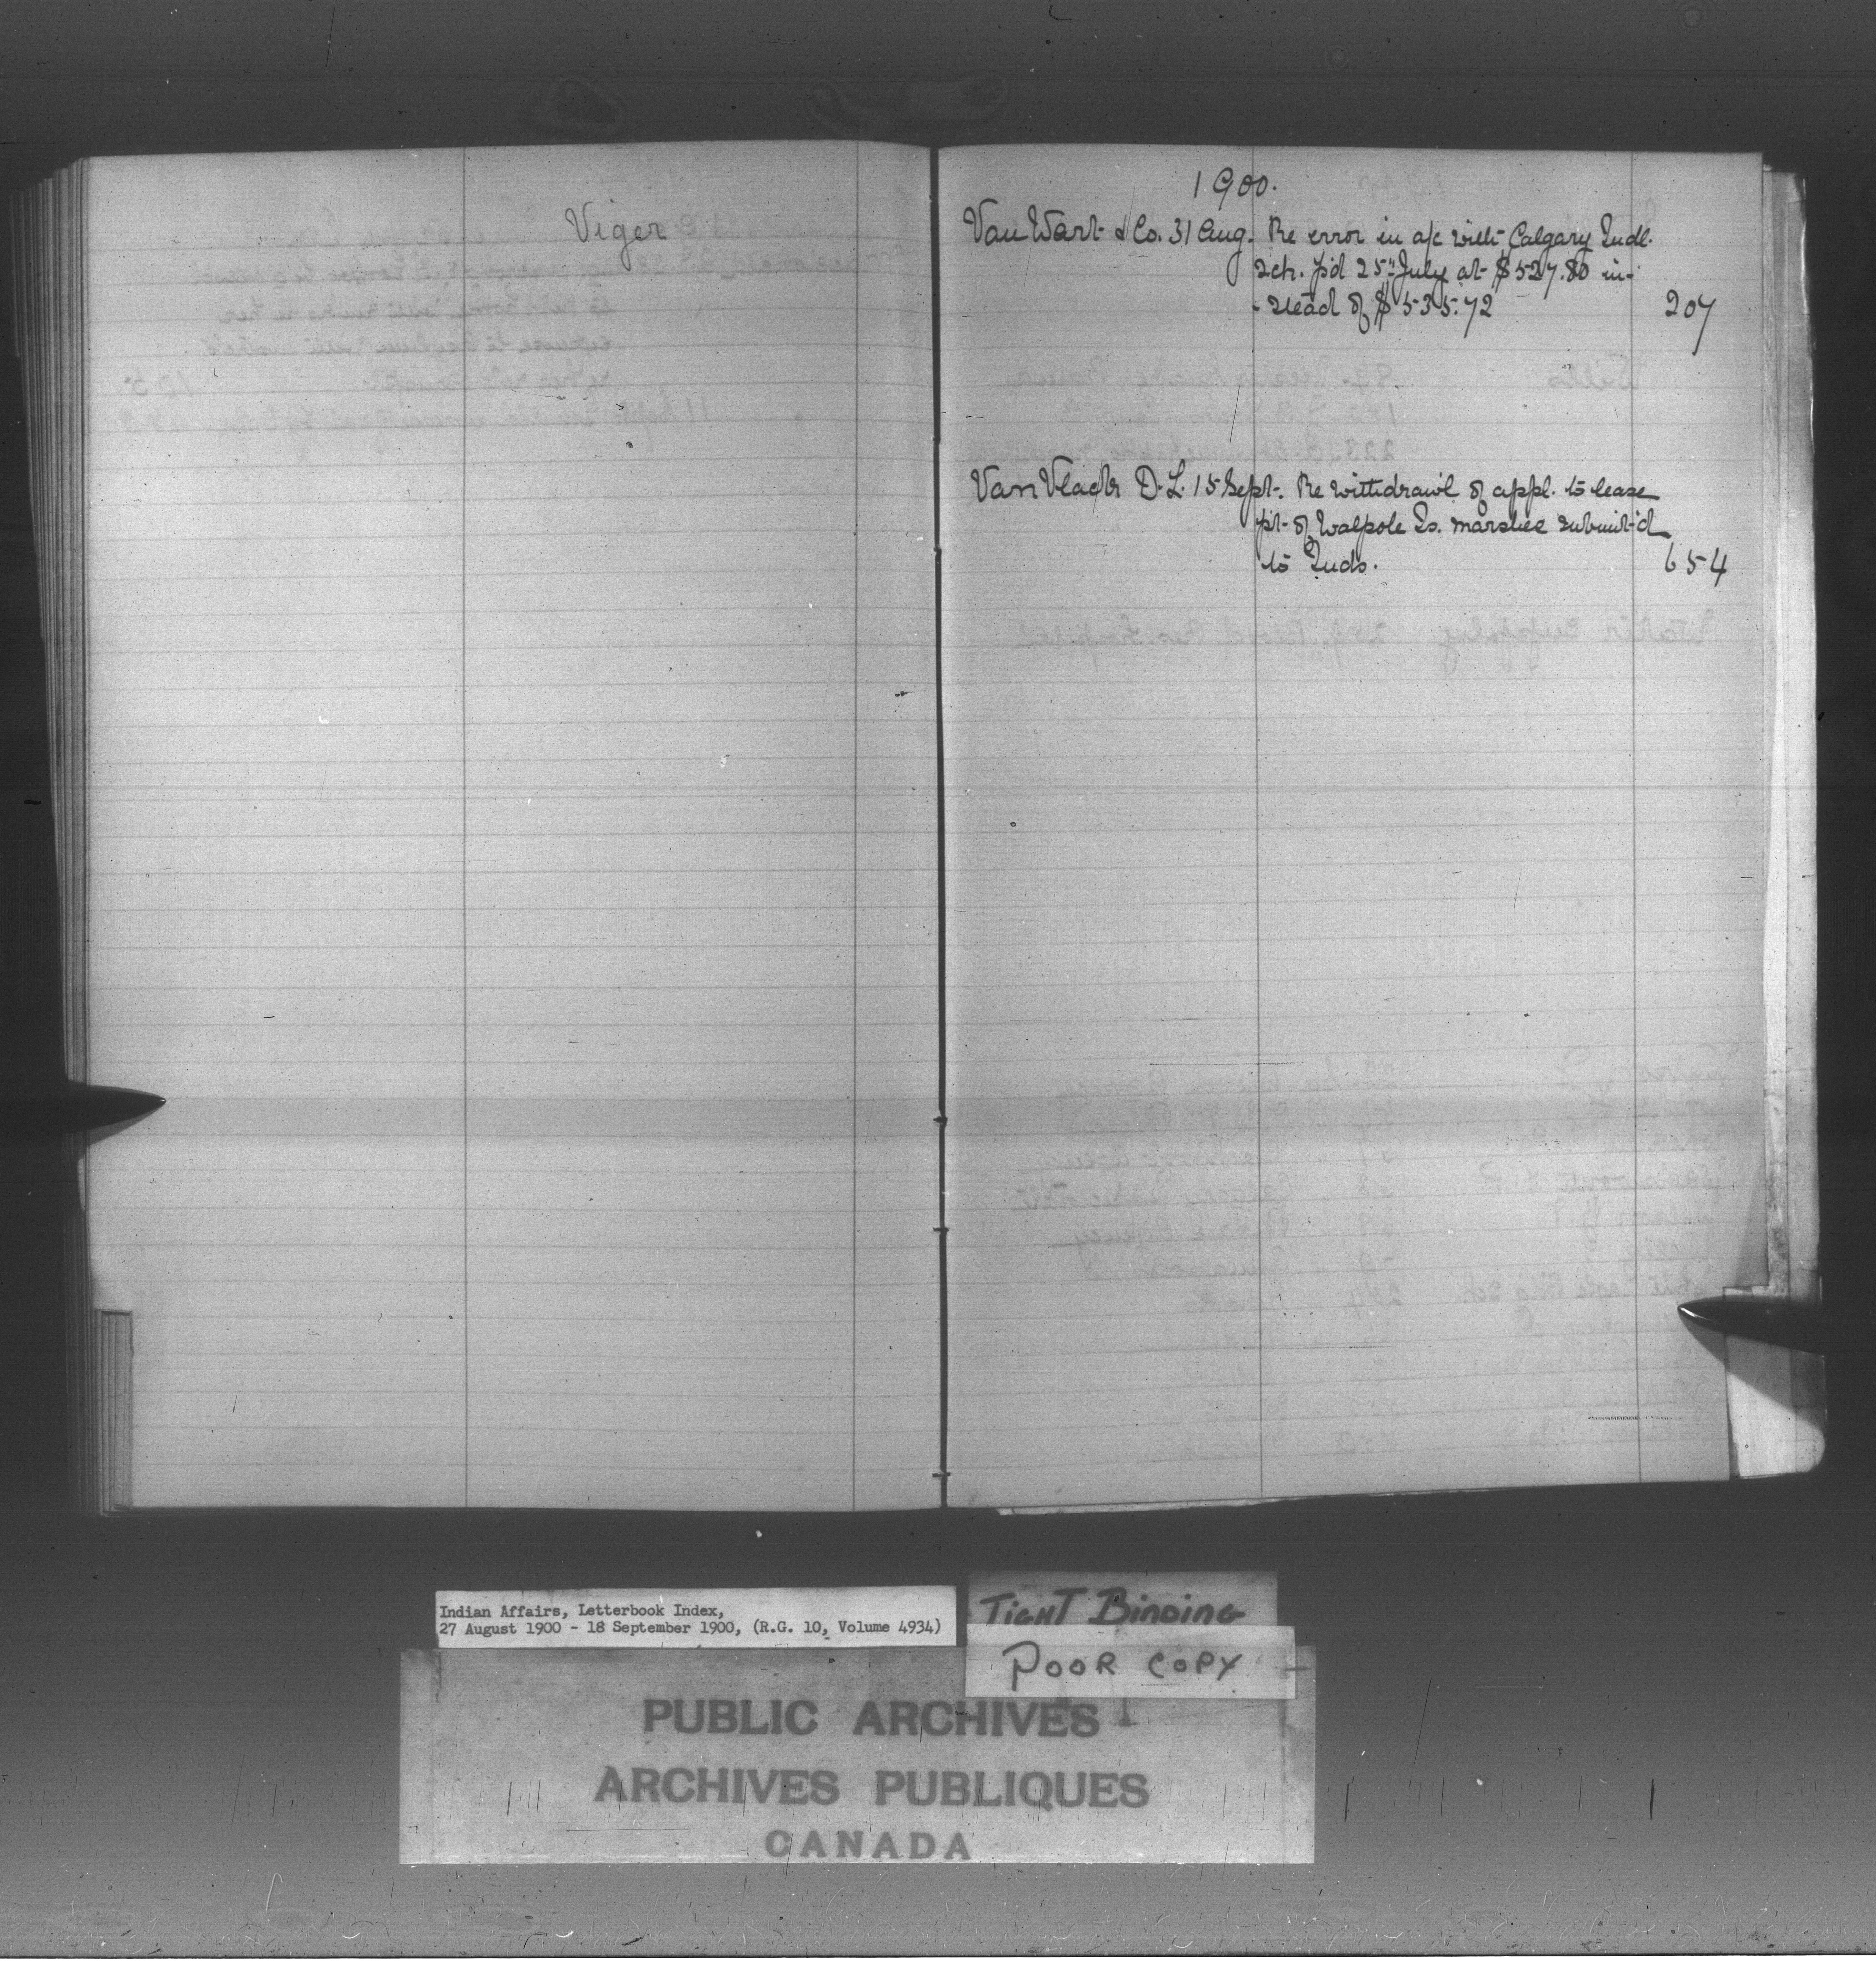 Viger
1900.
Van Wart & Co. 31 Aug. Re error in a/c with Calgary Indl.
Sch. p'd 25th July at $527.80 in-
-stead of $535.72 207
Van Vlack D. L. 15 Sept. Re withdrawl of appl. to lease
pt. of Walpole Is. marshes submit'd
to Inds. 654
Indian Affairs, Letterbook Index,
27 August 1900 - 18 September 1900, (R.G. 10, Volume 4934)
TIGHT BINDING
POOR COPY
PUBLIC ARCHIVES
ARCHIVES PUBLIQUES
CANADA